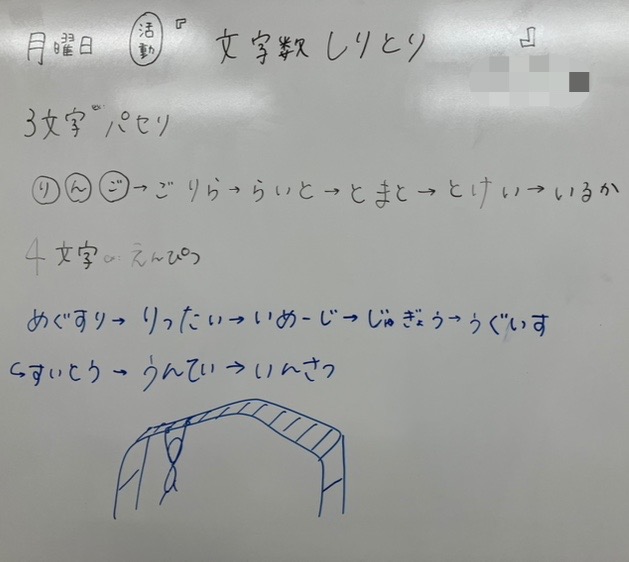 月曜日 活動 『文字数しりとり』
3文字 パセリ
りんご→ごりら→らいと→とまと→とけい→いるか
4文字 えんぴつ
めぐすり→りったい→いめーじ→じゅぎょう→うぐいす
↪すいとう→うんてい→いんさつ